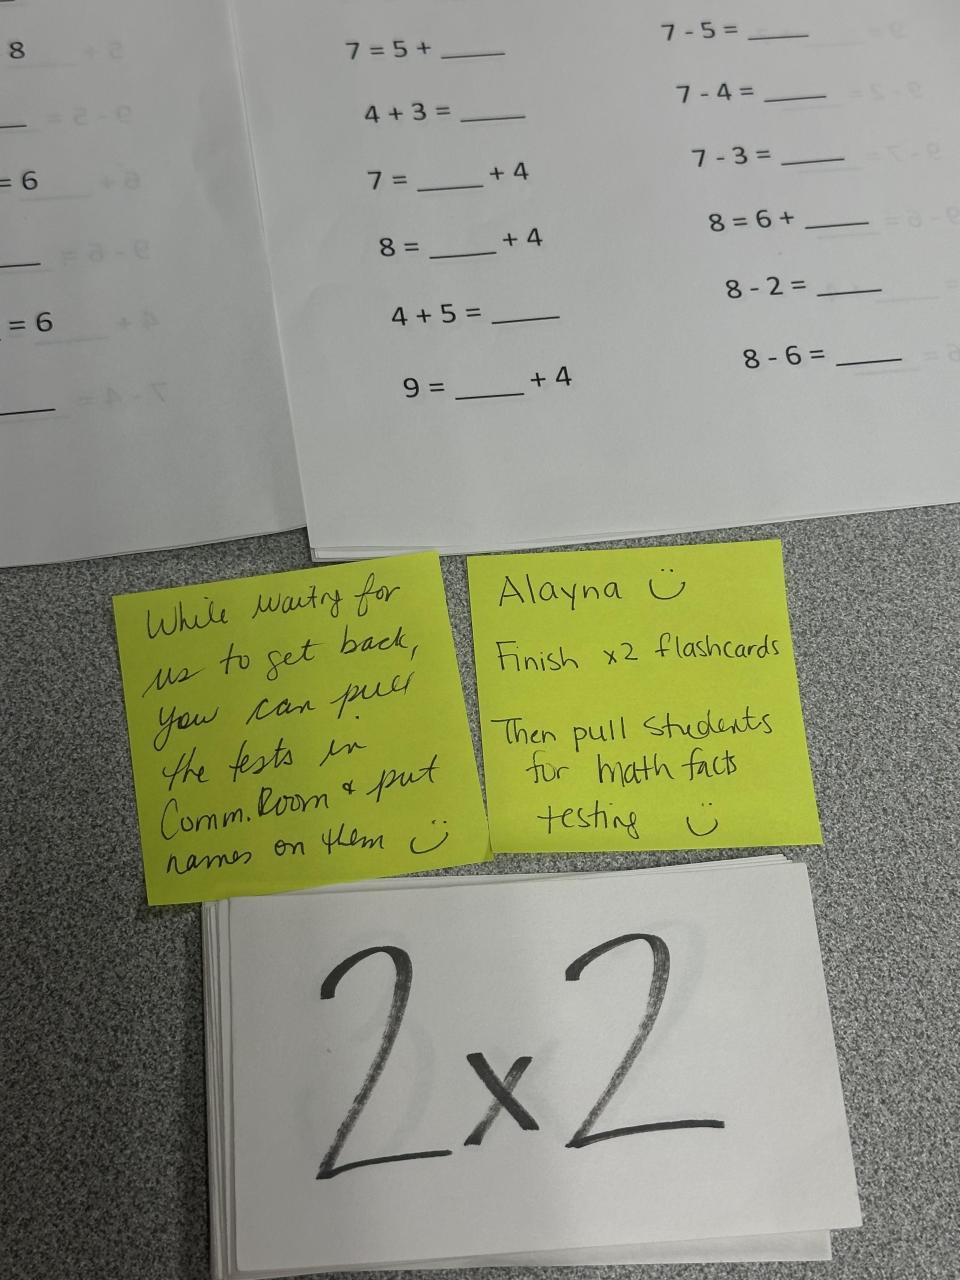 8
= 6
= 6
7 = 5 + ____
4 + 3 = ____
7 = ____ + 4
8 = ____ + 4
4 + 5 = ____
9 = ____ + 4
7 - 5 = ____
7 - 4 = ____
7 - 3 = ____
8 = 6 + ____
8 - 2 = ____
8 - 6 = ____
While waitng for
us to get back,
you can pull
the tests in
Comm. Room & put
names on them
Alayna
Finish x2 flashcards
Then pull students
for math facts
testing
2x2